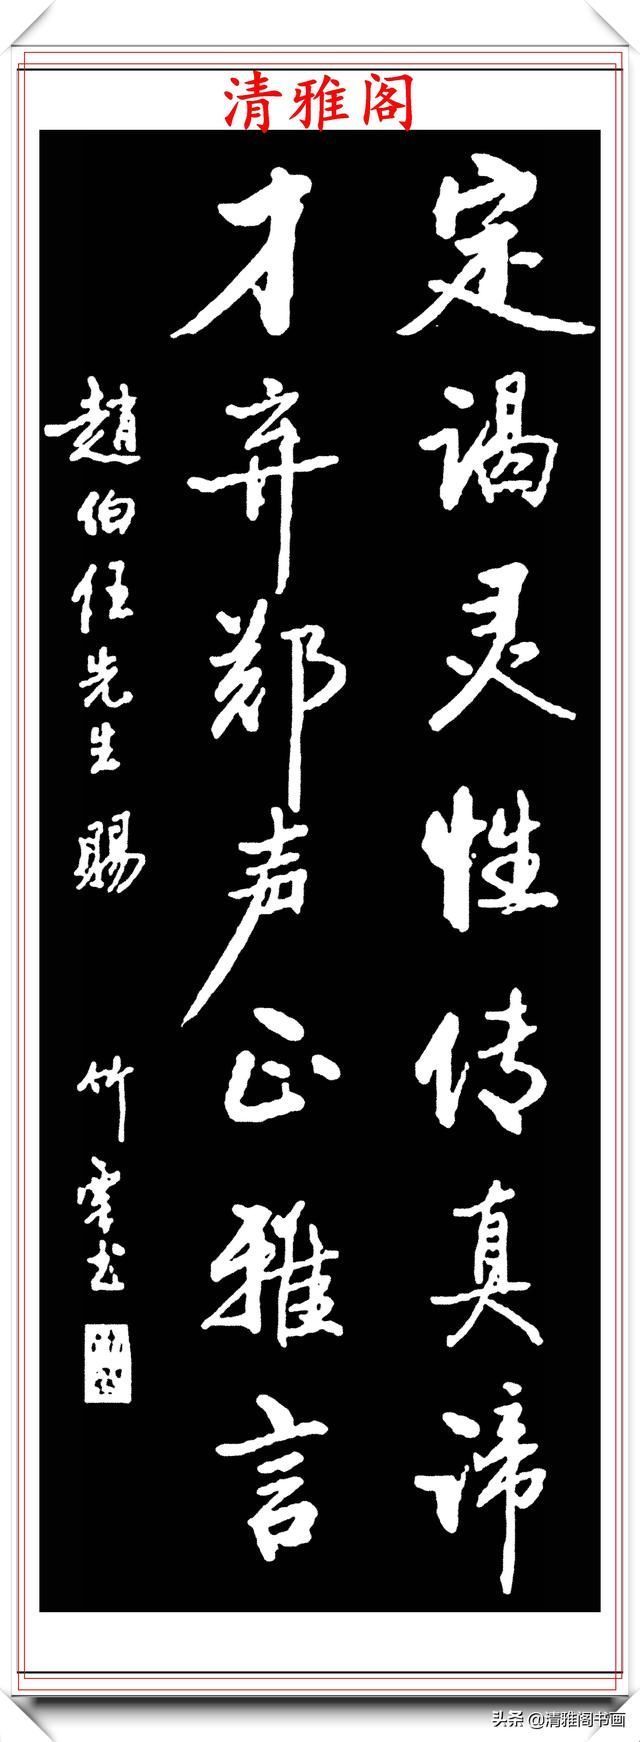 清雅阁
定谒灵性传真谛
才弃郑声正雅言
趙伯任先生賜
竹雲书
头条@清雅阁书画